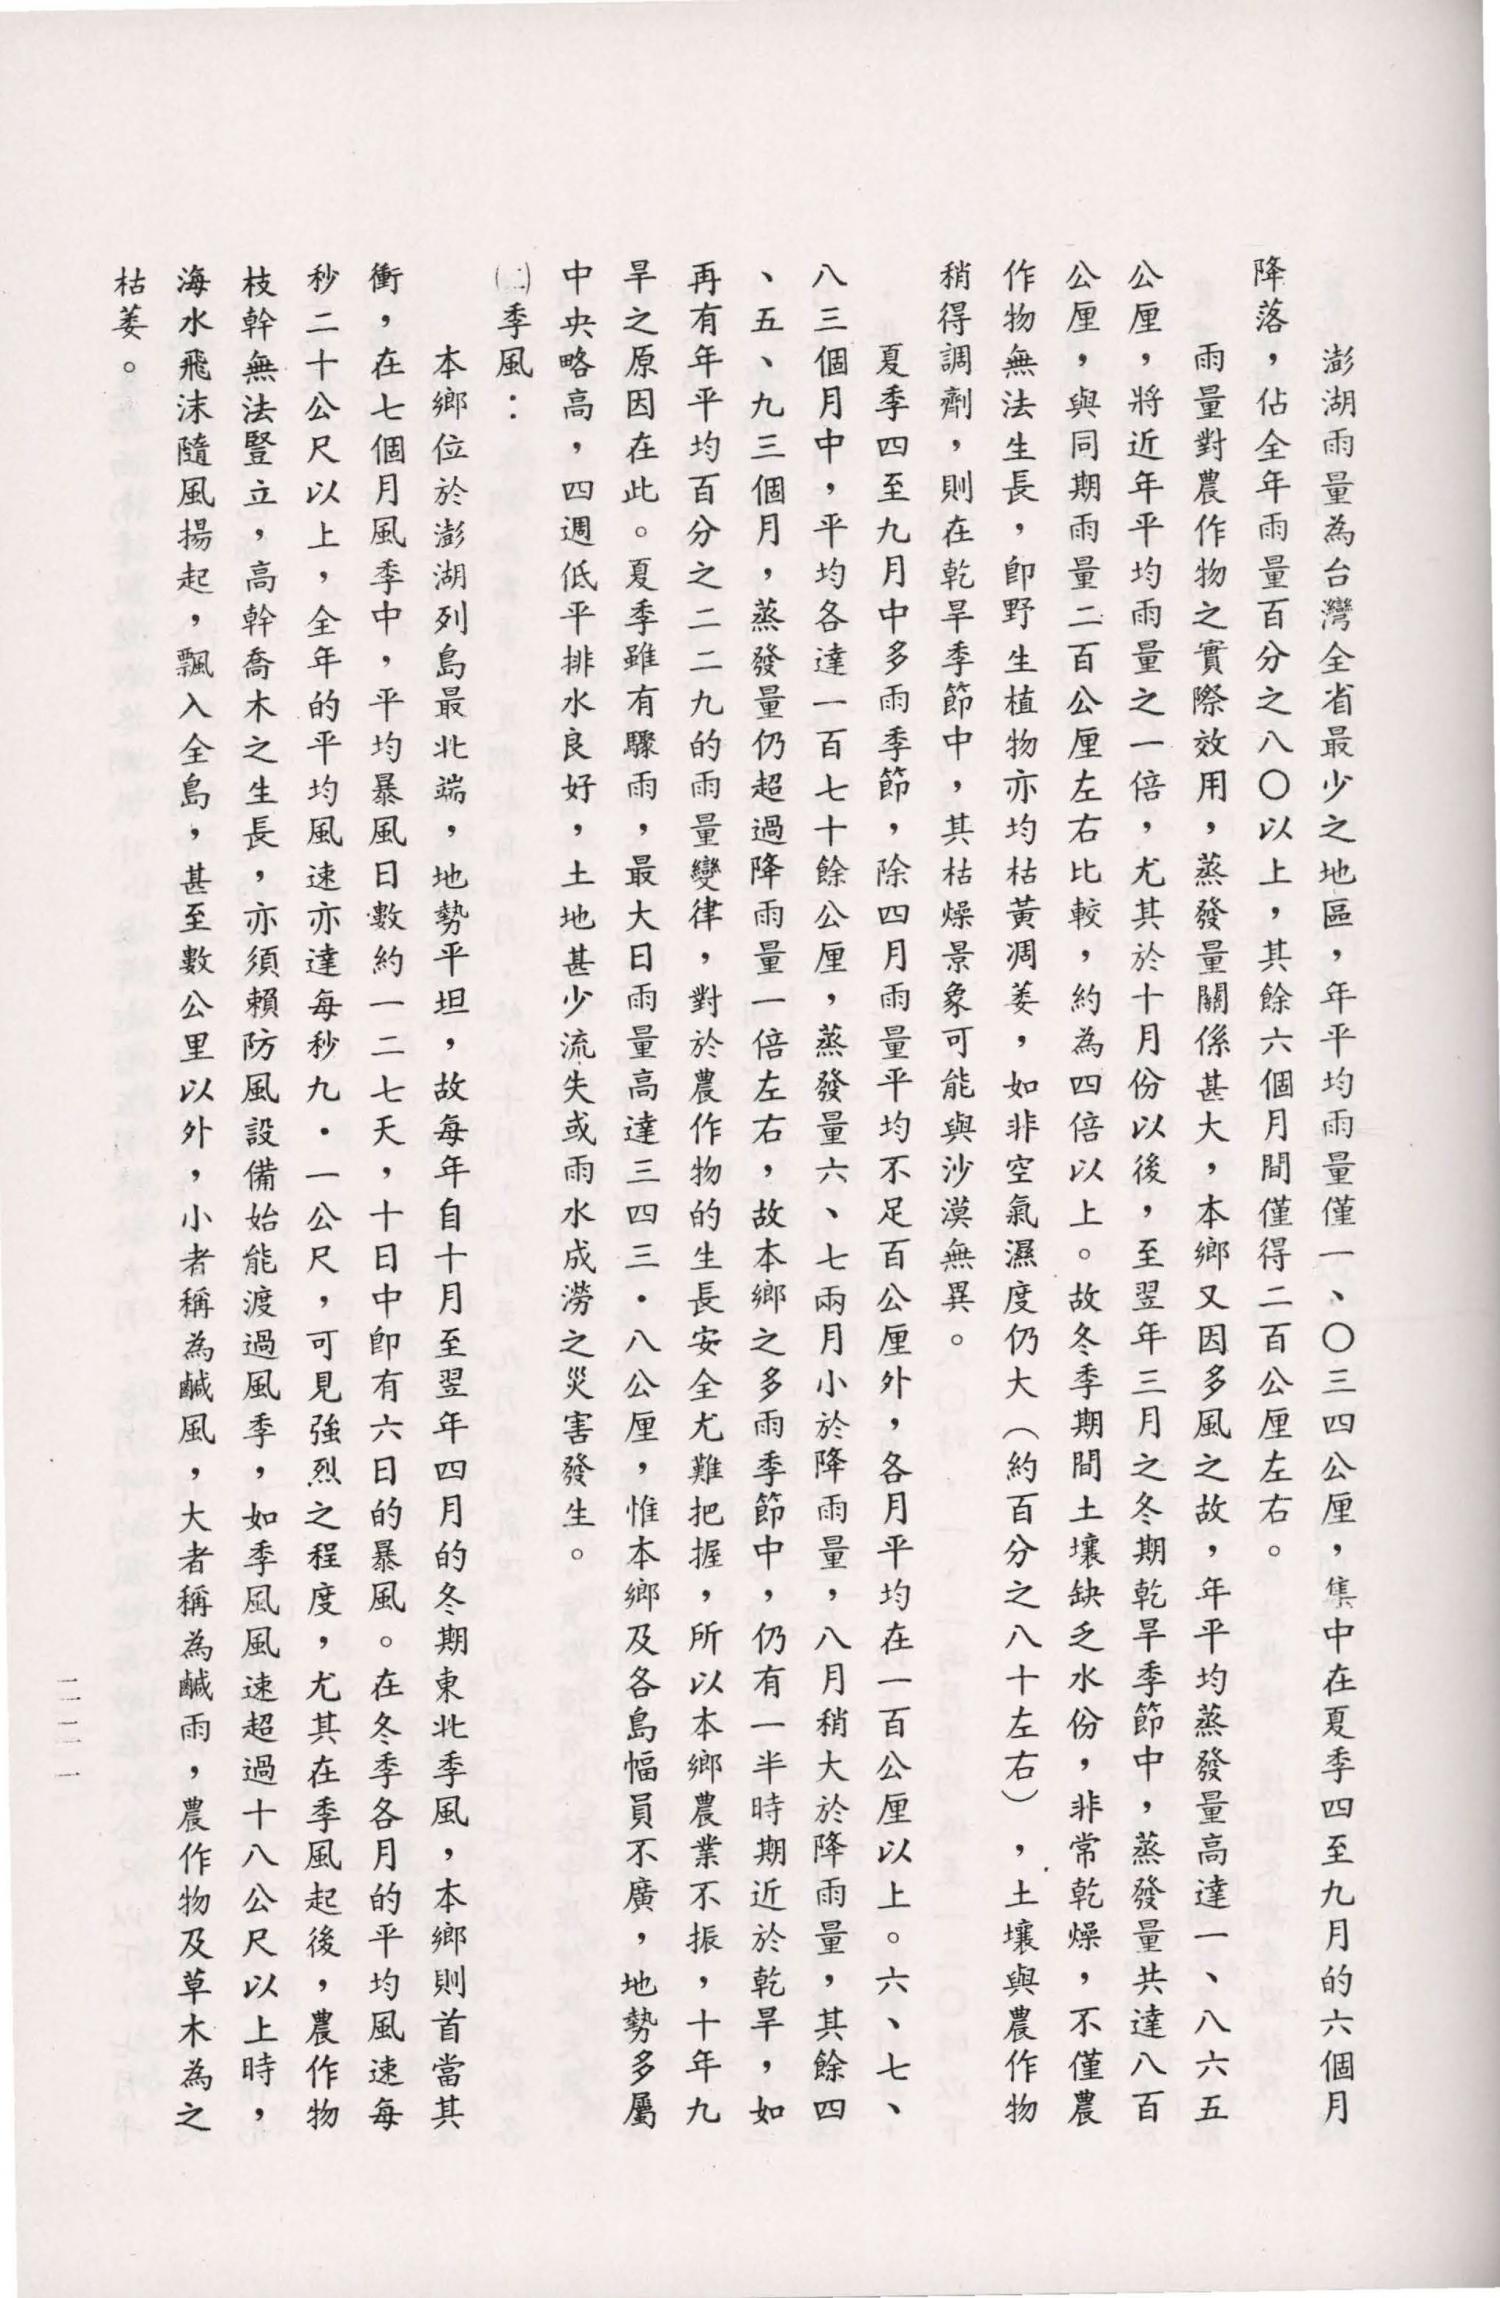 澎湖雨量為台灣全省最少之地區，年平均雨量僅一、〇三四公厘，集中在夏季四至九月的六個月
降落，佔全年雨量百分之八〇以上，其餘六個月間僅得二百公厘左右。
雨量對農作物之實際效用，蒸發量關係甚大，本鄉又因多風之故，年平均蒸發量高達一、八六五
公厘，將近年平均雨量之一倍，尤其於十月份以後，至翌年三月之冬期乾旱季節中，蒸發量共達八百
公厘，與同期雨量二百公厘左右比較，約為四倍以上。故冬季期間土壤缺乏水份，非常乾燥，不僅農
作物無法生長，卽野生植物亦均枯黃凋萎，如非空氣濕度仍大（約百分之八十左右），土壤與農作物
稍得調劑，則在乾旱季節中，其枯燥景象可能與沙漠無異。
夏季四至九月中多雨季節，除四月雨量平均不足百公厘外，各月平均在一百公厘以上。六、七、
八三個月中，平均各達一百七十餘公厘，蒸發量六、七兩月小於降雨量，八月稍大於降雨量，其餘四
、五、九三個月，蒸發量仍超過降雨量一倍左右，故本鄉之多雨季節中，仍有一半時期近於乾旱，如
再有年平均百分之二二九的雨量變律，對於農作物的生長安全尤難把握，所以本鄉農業不振，十年九
旱之原因在此。夏季雖有驟雨，最大日雨量高達三四三・八公厘，惟本鄉及各島幅員不廣，地勢多屬
中央略高，四週低平排水良好，土地甚少流失或雨水成澇之災害發生。
㈡季風：
本鄉位於澎湖列島最北端，地勢平坦，故每年自十月至翌年四月的冬期東北季風，本鄉則首當其
衝，在七個月風季中，平均暴風日數約一二七天，十日中卽有六日的暴風。在冬季各月的平均風速每
秒二十公尺以上，全年的平均風速亦達每秒九・一公尺，可見強烈之程度，尤其在季風起後，農作物
枝幹無法豎立，高幹喬木之生長，亦須賴防風設備始能渡過風季，如季風風速超過十八公尺以上時，
海水飛沫隨風揚起，飄入全島，甚至數公里以外，小者稱為鹹風，大者稱為鹹雨，農作物及草木為之
枯萎。